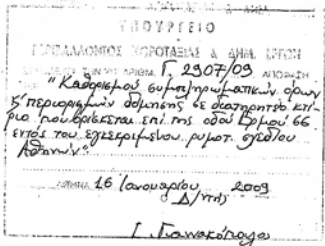 ΥΠΟΥΡΓΕΙΟ
ΠΕΡΙΒΑΛΛΟΝΤΟΣ ΧΩΡΟΤΑΞΙΑΣ & ΔΗΜ. ΕΡΓΩΝ
ΑΡΙΘΜ. Γ 2907/09 ΑΠΟΦΑΣΗ
"Καθορισμού συμπληρωματικών όρων
& περιορισμών δόμησης σε διατηρητέο κτί-
ριο που βρίσκεται επί της οδού Ερμού 66
εντός του εγκεκριμένου ρυμοτ. σχεδίου
Αθηνών".
ΑΘΗΝΑ 16 Ιανουαρίου 2009
Δ/ντής